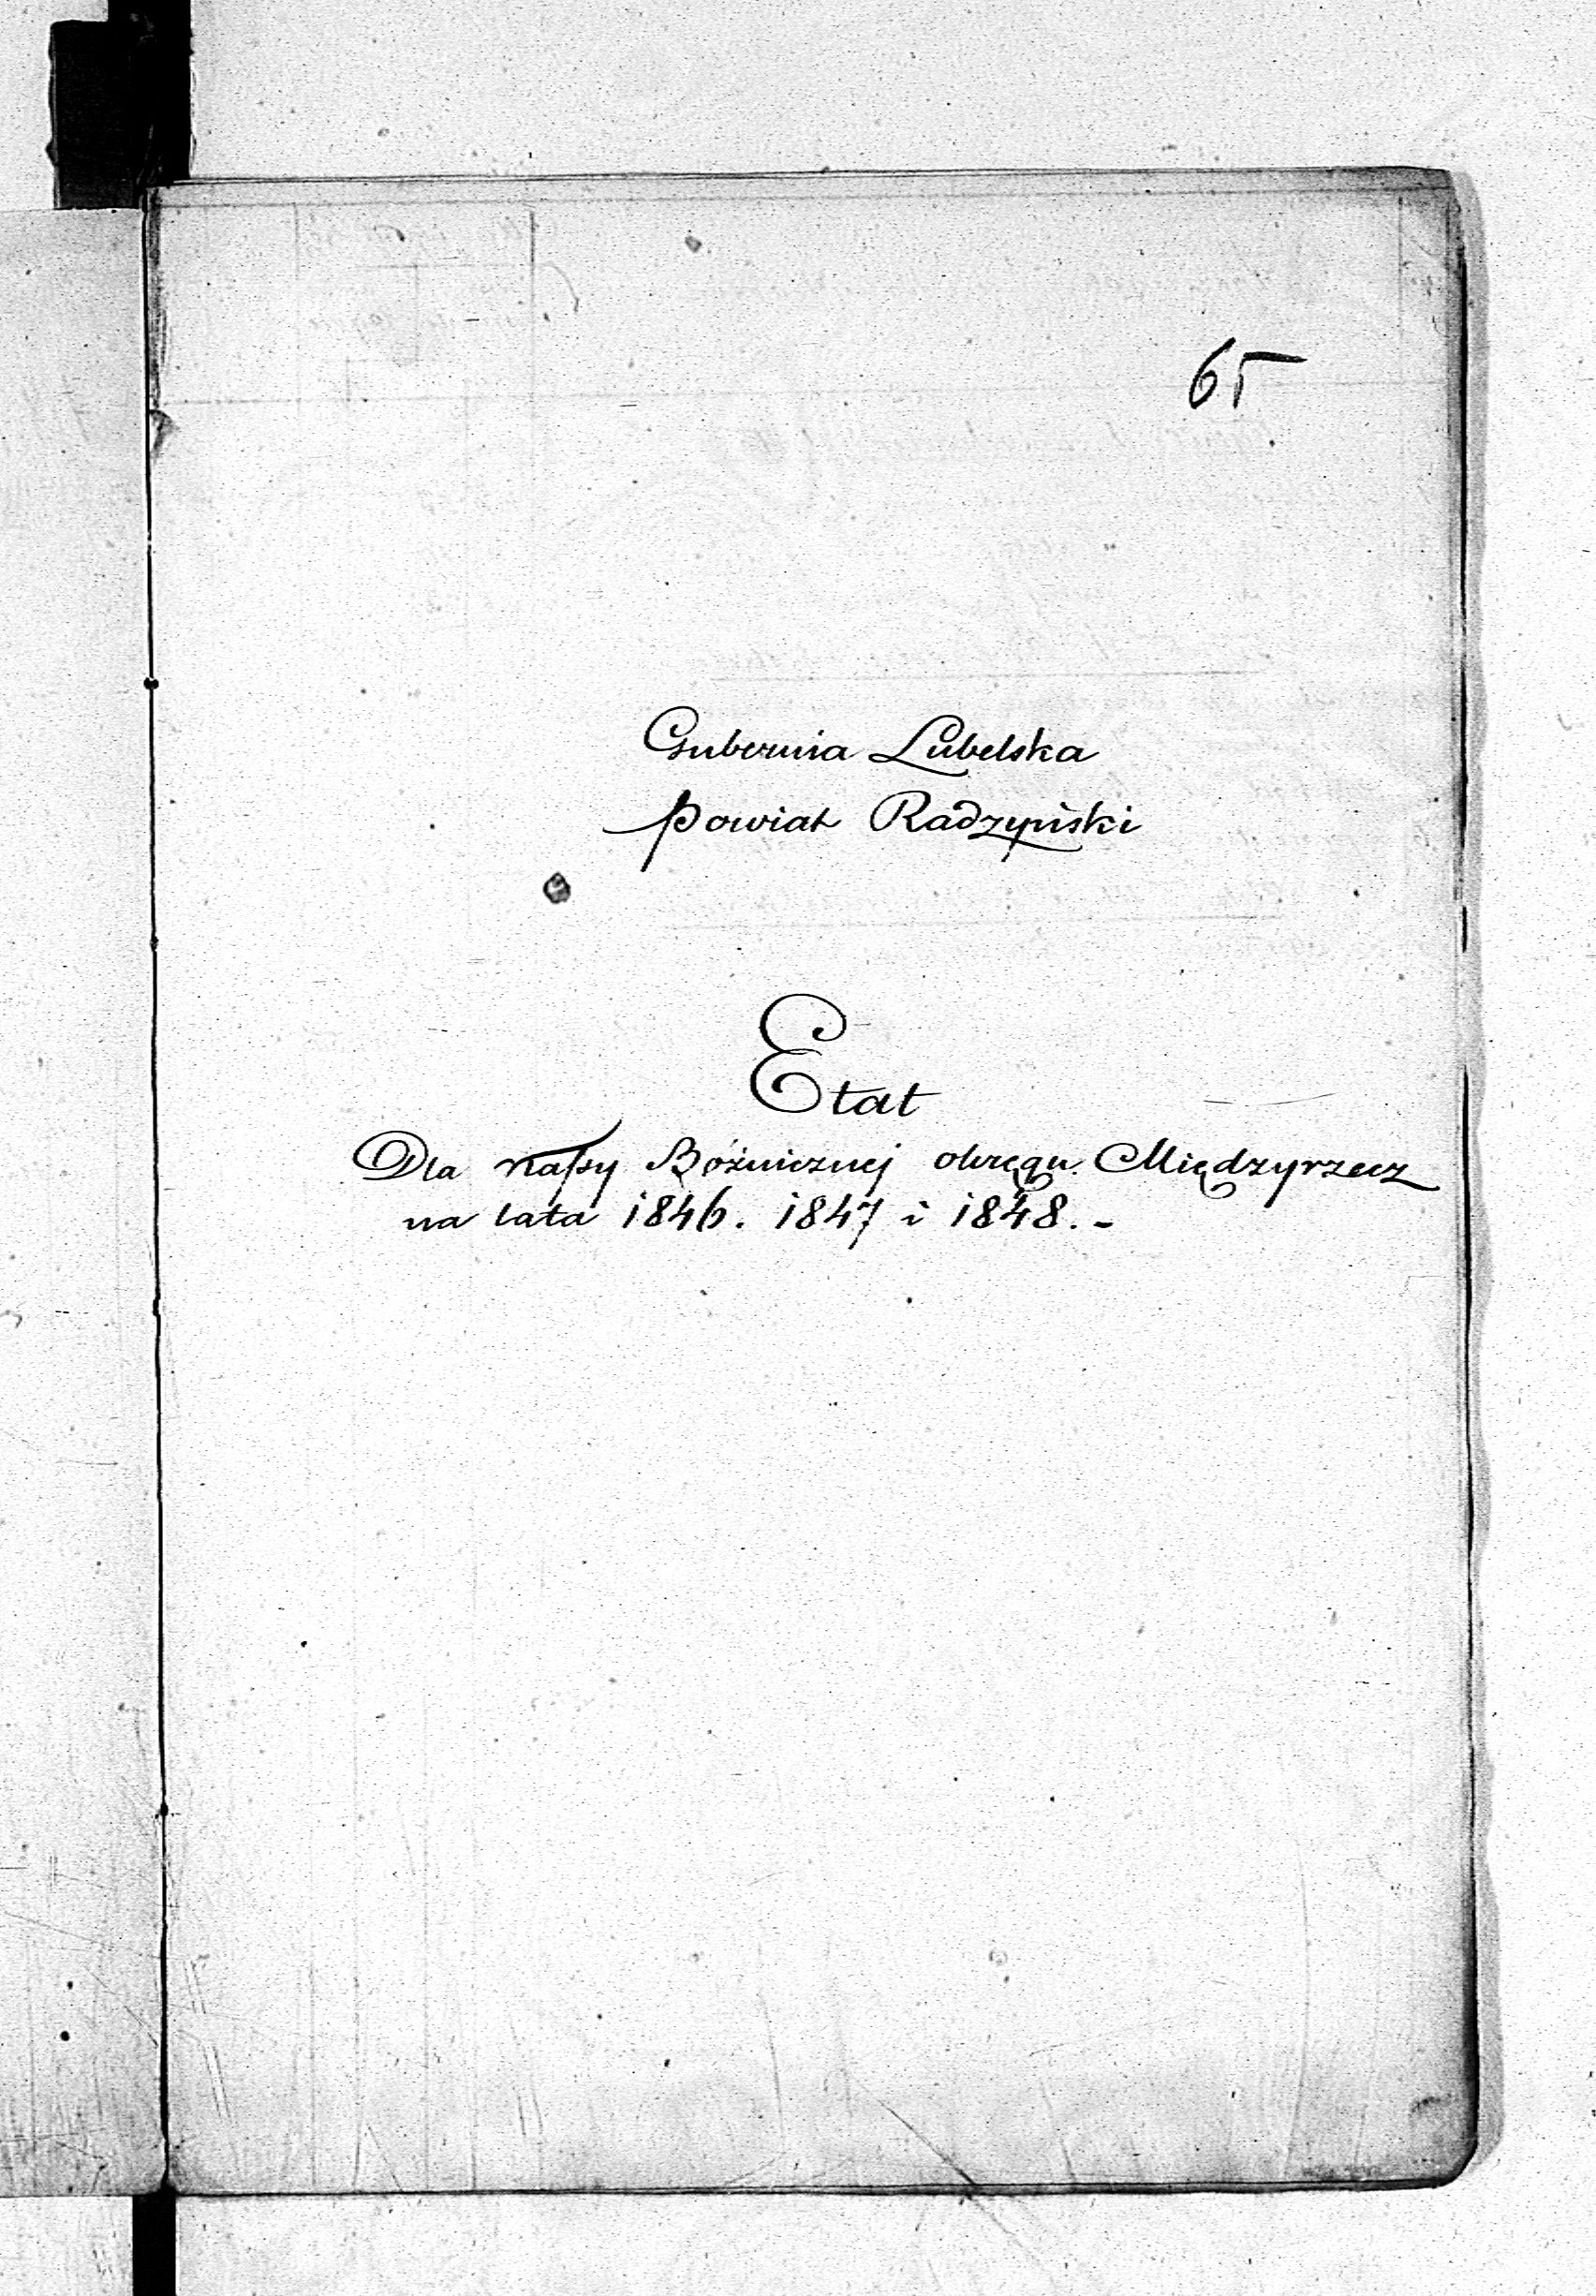 65
Gubernia Lubelska
Powiat Radzyński
Etat
Dla Kaſsy Bóżnicznej okręgu Międzyrzecz
na lata 1846. 1847 i 1848. -